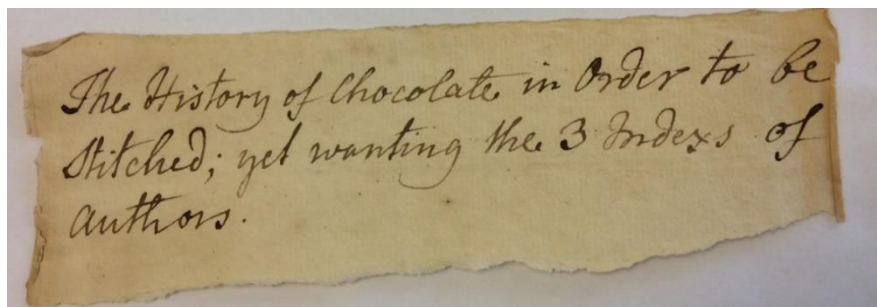 The History of Chocolate in Order to be
Stitched; yet wanting the 3 Indexs of
Authors.